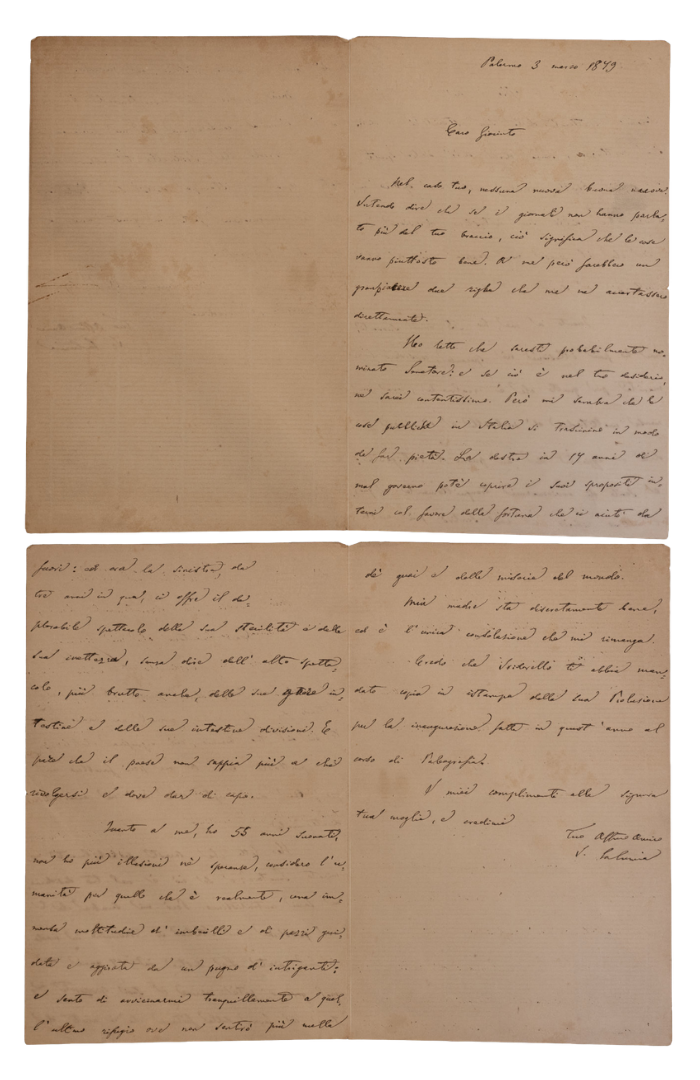 Palermo 3 marzo 1879
Caro Giacinto
Nel caso tuo, nessuna nuova buona nuova.
Intendo dire che se i giornali non hanno parla,
to più del tuo braccio, ciò significa che le cose
vanno piuttosto bene. A me però farebbero un
gran due righe che me ne
direttamente.
Ho letto che saresti probabilmente no,
minato Senatore: e se ciò è nel tuo desiderio,
ne sarei contentissimo. Però mi sembra che le
cose pubbliche in Italia si in modo
da far pietà. La destra in 17 anni di
mal governo potè coprire i suoi spropositi in,
terni col favore della fortuna che in aiuto da
fuori: ed ora la sinistra, da
tre anni in qua, ci offre il de,
plorabile spettacolo della sua sterilità e della
sua inettezza, senza dire dell' altro spetta,
colo, più brutto ancora, delle sue in,
testine e delle sue intestine divisioni. E
pare che il paese non sappia più a chi
rivolgersi e dove dar di capo.
Quanto a me, ho 55 anni suonati,
non ho più illusioni nè speranze, considero l'u,
manità per quello che è realmente, una im,
mensa moltitudine d' imbecilli e di pazzi gui,
data e da un pugno d' intriganti:
e sento di avvicinarmi tranquillamente a quel,
l'ultimo rifugio ove non sentirò più nulla
de' guai e delle miserie del mondo.
Mia madre sta discretamente bene,
ed è l'unica consolazione che mi rimanga.
Credo che Isidorello ti abbia man,
dato copia in istampa della sua Prolusione
per la inaugurazione fatta in quest'anno al
corso di Paleografia.
I miei complimenti alla signora
tua moglie, e credimi
Tuo Affmo Amico